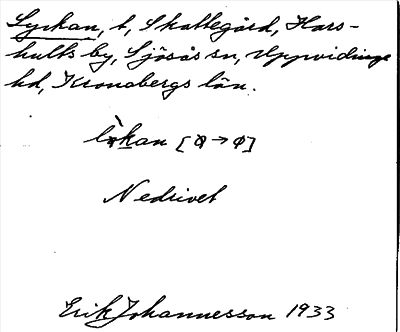 Lyckan, t, Skattegård, Hars-
hults by, Sjösås sn, Uppvidinge
hd, Kronobergs län.
Nedrivet
Erik Johannesson 1933